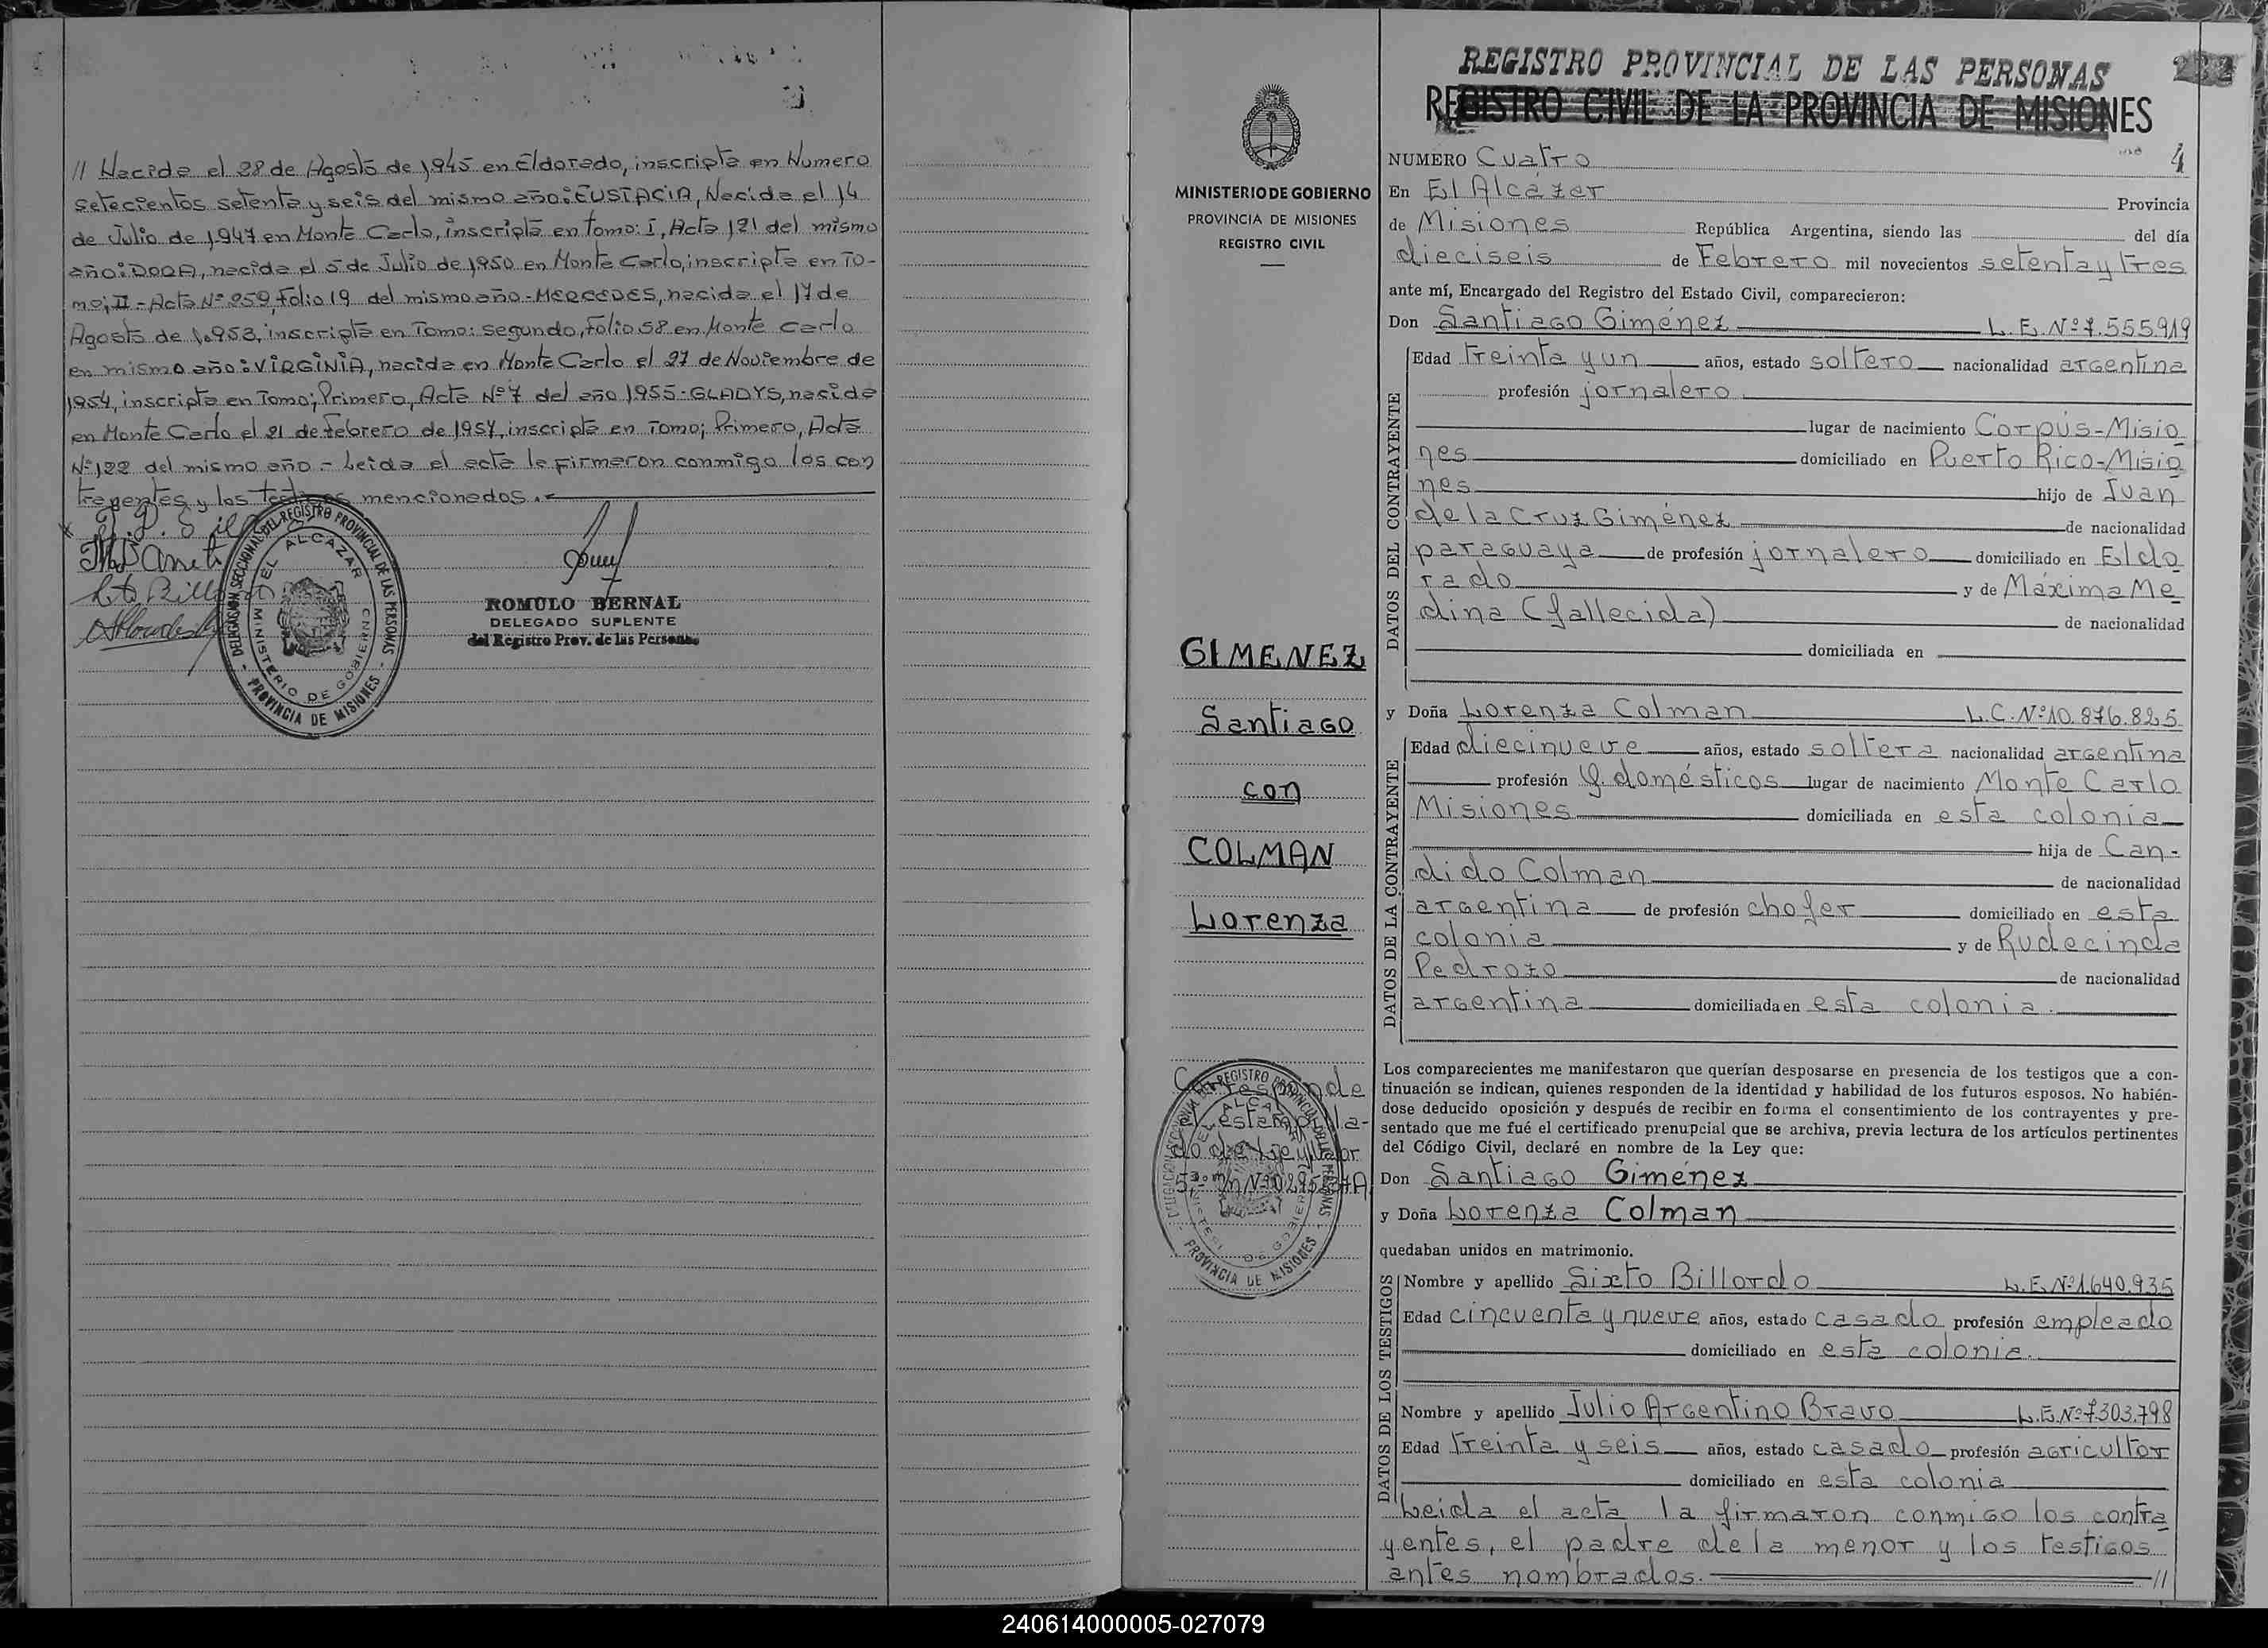 // Nacida el 28 de Agosto de 1945 en Eldorado, inscripta en Numero
setecientos setenta y seis del mismo año: EUSTACIA, Nacida el 14
de Julio de 1947 en Monte Carlo, inscripta en tomo: I, Acta 121 del mismo
año: DORA, nacida el 5 de Julio de 1950 en Monte Carlo, inscripta en To-
mo; II - Acta Nº 259, Folio 19 del mismo año - MERCEDES, nacida el 17 de
Agosto de 1.953, inscripta en Tomo: segundo, Folio 58 en Monte Carlo
en mismo año: VIRGINIA, nacida en Monte Carlo el 27 de Noviembre de
1954, inscripta en Tomo; Primero, Acta Nº 7 del año 1955 - GLADYS, nacida
en Monte Carlo el 21 de Febrero de 1957, inscripta en Tomo; Primero, Acta
Nº 122 del mismo año - Leida el acta la firmaron conmigo los con
trayentes y los testigos mencionados. -
DELEGACION SECCIONAL DEL REGISTRO PROVINCIAL DE LAS PERSONAS
EL ALCAZAR
MINISTERIO DE GOBIERNO
- PROVINCIA DE MISIONES -
ROMULO BERNAL
DELEGADO SUPLENTE
del Registro Prov. de las Personas
MINISTERIO DE GOBIERNO
PROVINCIA DE MISIONES
REGISTRO CIVIL
GIMENEZ
Santiago
con
COLMAN
Lorenza
Corresponde
el estampi-lla-
do del
PROVINCIA DE MISIONES
REGISTRO PROVINCIAL DE LAS PERSONAS
232
REGISTRO CIVIL DE LA PROVINCIA DE MISIONES
NUMERO Cuatro 4
En El Alcázar Provincia
de Misiones República Argentina, siendo las del día
dieciseis de Febrero mil novecientos setenta y tres
ante mí, Encargado del Registro del Estado Civil, comparecieron:
Don Santiago Giménez L. E. Nº 7.555.919
DATOS DEL CONTRAYENTE
Edad treinta y un años, estado soltero nacionalidad argentina
profesión jornalero
lugar de nacimiento Corpus-Misio
nes domiciliado en Puerto Rico-Misio
nes hijo de Juan
de la Cruz Giménez de nacionalidad
paraguaya de profesión jornalero domiciliado en Eldo
rado y de Máxima Me
dina (fallecida) de nacionalidad
domiciliada en
y Doña Lorenza Colman L.C. Nº 10.876.825
DATOS DE LA CONTRAYENTE
Edad diecinueve años, estado soltera nacionalidad argentina
profesión Q. domésticos lugar de nacimiento Monte Carlo
Misiones domiciliada en esta colonia
hija de Can-
dido Colman de nacionalidad
argentina de profesión chofer domiciliado en esta
colonia y de Rudecinda
Pedrozo de nacionalidad
argentina domiciliada en esta colonia.
Los comparecientes me manifestaron que querían desposarse en presencia de los testigos que a con-
tinuación se indican, quienes responden de la identidad y habilidad de los futuros esposos. No habién-
dose deducido oposición y después de recibir en forma el consentimiento de los contrayentes y pre-
sentado que me fué el certificado prenupcial que se archiva, previa lectura de los artículos pertinentes
del Código Civil, declaré en nombre de la Ley que:
Don Santiago Giménez
y Doña Lorenza Colman
quedaban unidos en matrimonio.
DATOS DE LOS TESTIGOS
Nombre y apellido Sixto Billordo L.E. Nº 1.640.935
Edad cincuenta y nueve años, estado casado profesión empleado
domiciliado en esta colonia.
Nombre y apellido Julio Argentino Bravo L.E. Nº 7.303.798
Edad treinta y seis años, estado casado profesión agricultor
domiciliado en esta colonia
Leida el acta la firmaron conmigo los contra
yentes, el padre de la menor y los testigos
antes nombrados. //
240614000005-027079